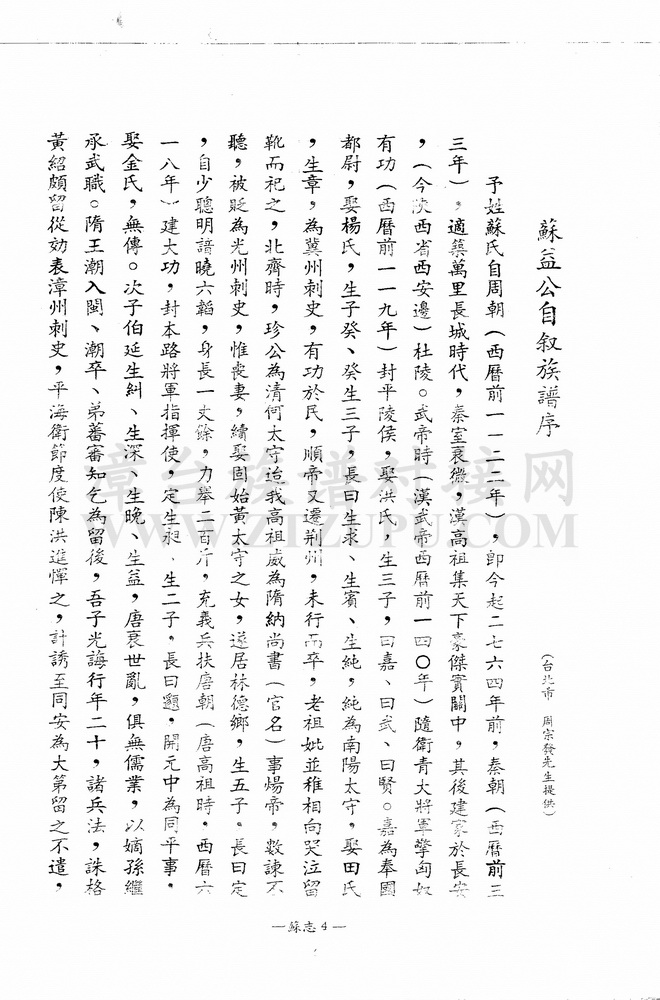 蘇益公自叙族譜序
(台北市 周宗發先生提供)
予姓蘇氏自周朝(西曆前一一二二年),即今起二七六四年前,秦朝(西曆前三
三年),適築萬里長城時代,秦室衰微,漢高祖集天下豪傑實關中,其後建家於長安
,(今陝西省西安邊)杜陵。武帝時(漢武帝西曆前一四〇年)隨衛青大將軍擊匈奴
有功(西曆前一一九年)封平陵侯,娶洪氏,生三子,曰嘉、曰武、曰賢。嘉為奉國
都尉,娶楊氏,生子癸、癸生三子,長曰生求、生賓、生純,純為南陽太守,娶田氏
,生章,為冀州刺史,有功於民,順帝又遷荆州,未行而卒,老祖妣並稚相向哭泣留
靴而祀之,北齊時,珍公為清何太守迨我高祖威為隋納尚書(官名)事煬帝,數諫不
聽,被貶為光州刺史,惟喪妻,續娶固始黃太守之女,遂居林德鄉,生五子。長曰定
,自少聰明諳曉六韜,身長一丈餘,力舉二百斤,充義兵扶唐朝(唐高祖時,西曆六
一八年)建大功,封本路將軍指揮使,定生昶、生二子。長曰顗,開元中為同平事。
娶金氏,無傳。次子伯延生糾、生深、生晚、生益,唐衰世亂,俱無儒業,以嫡孫繼
承武職。隋王潮入閩、潮卒、弟審知乞為留後,吾子光誨行年二十,諸兵法,誅格
黃紹頗留從効表漳州刺史,平海衛節度使陳洪進憚之,計誘至同安為大第留之不遣,
—蘇志4—
章台族譜對接网
WWW.ZTZUPU.COM